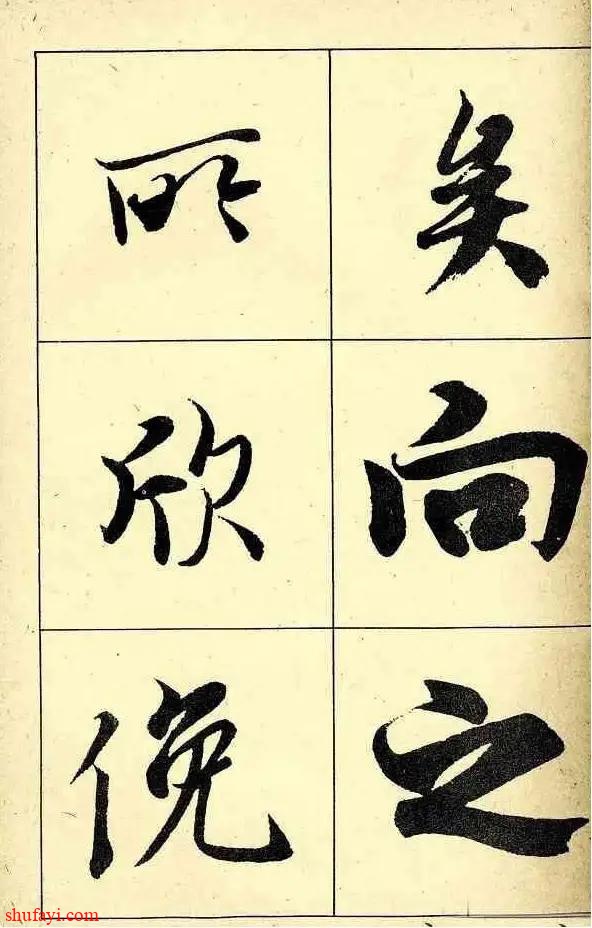 矣向之
所欣俛
shufayi.com